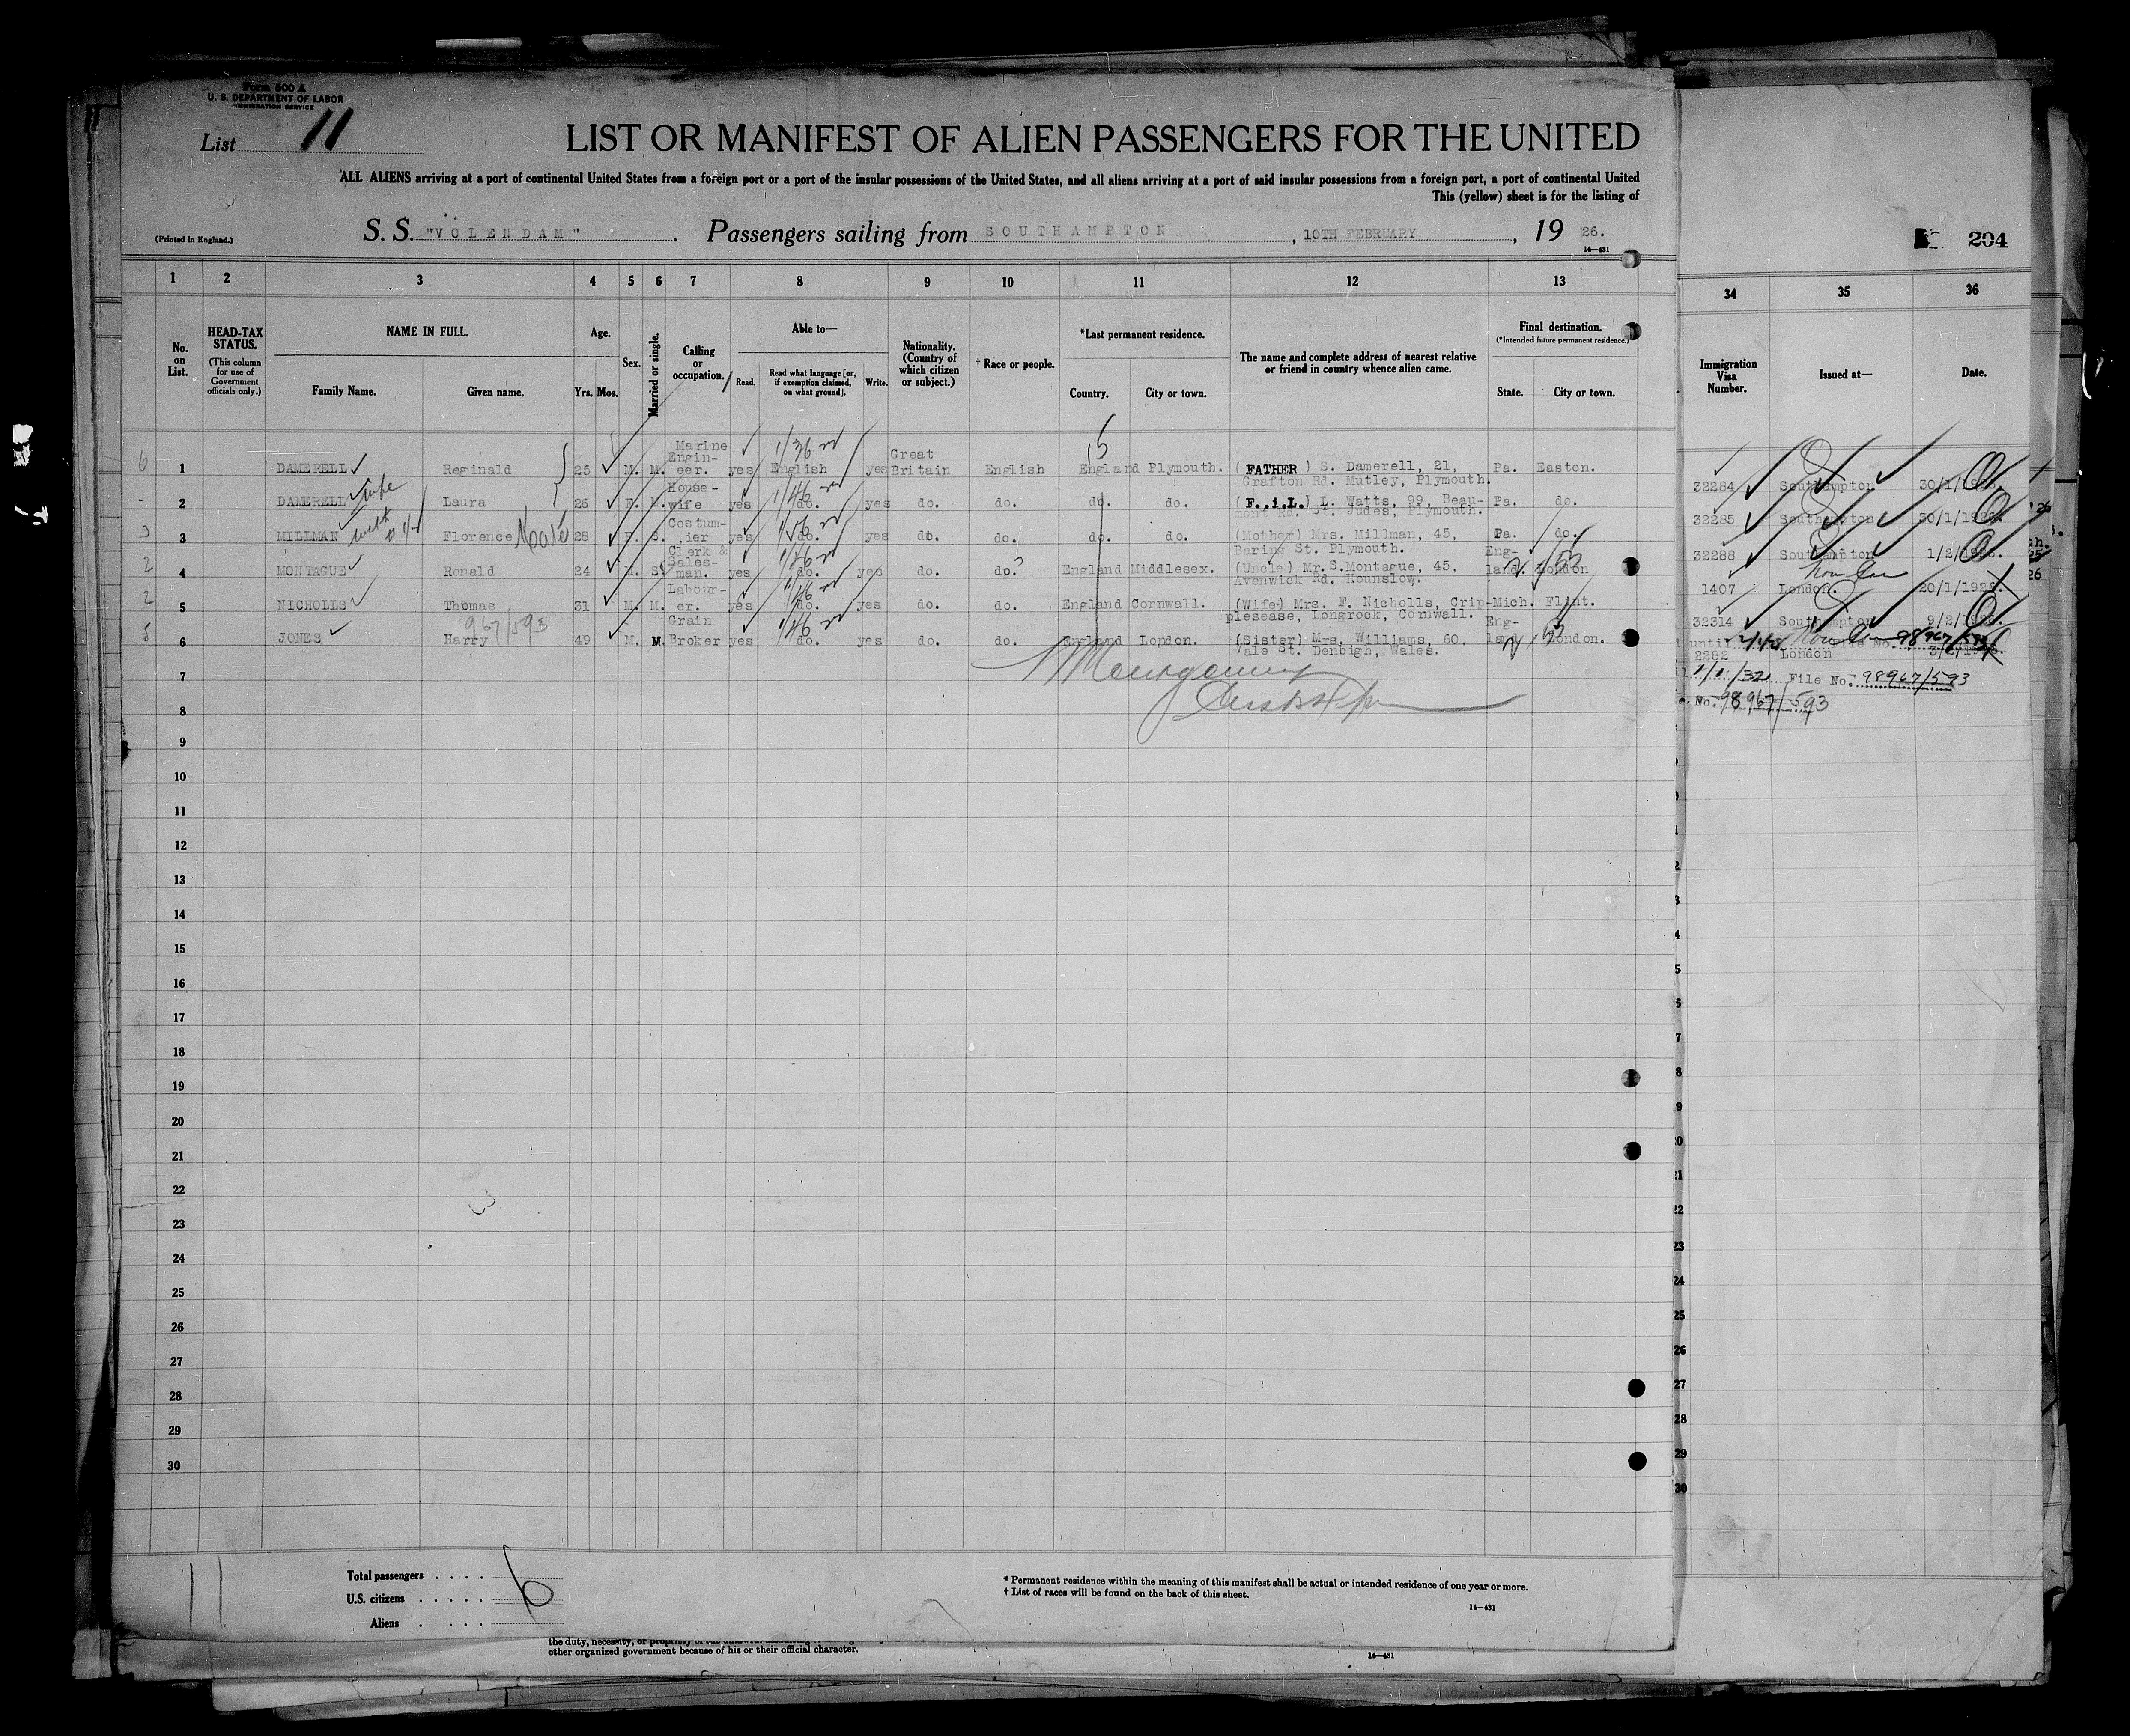 Form 500 A
U. S. DEPARTMENT OF LABOR
IMMIGRATION SERVICE
List 11
LIST OR MANIFEST OF ALIEN PASSENGERS FOR THE UNITED
ALL ALIENS arriving at a port of continental United States from a foreign port or a port of the insular possessions of the United States, and all aliens arriving at a port of said insular possessions from a foreign port, a port of continental United
This (yellow) sheet is for the listing of
(Printed in England.)
S. S. "VOLENDAM". Passengers sailing from SOUTHAMPTON, 10TH FEBRUARY, 19 26.
14—431
204
1 2 3 4 5 6 7 8 9 10 11 12 13 34 35 36
No. on List.
HEAD-TAX STATUS.
(This column for use of Government officials only.)
NAME IN FULL.
Family Name. Given name.
Age.
Yrs. Mos.
Sex.
Married or single.
Calling or occupation.
Able to—
Read. Read what language [or, if exemption claimed, on what ground]. Write.
Nationality. (Country of which citizen or subject.)
† Race or people.
*Last permanent residence.
Country. City or town.
The name and complete address of nearest relative or friend in country whence alien came.
Final destination.
(*Intended future permanent residence.)
State. City or town.
Immigration Visa Number.
Issued at—
Date.
1 DAMERELL Reginald 25 M. M. Marine Engin-eer. yes English yes Great Britain English England Plymouth. (FATHER) S. Damerell, 21, Grafton Rd. Mutley, Plymouth. Pa. Easton. 32284 Southampton 30/1/1926.
2 DAMERELL wife Laura 26 F. M. House-wife yes do. yes do. do. do. do. (F.i.L.) L. Watts, 99, Beau-mont Rd. St. Judes, Plymouth. Pa. do. 32285 Southampton 30/1/1926.
3 MILLMAN Florence 28 F. S. Costum-ier yes do. yes do. do. do. do. (Mother) Mrs. Millman, 45, Baring St. Plymouth. Pa. do. 32288 Southampton 1/2/1926.
4 MONTAGUE Ronald 24 M. S. Clerk & Sales-man. yes do. yes do. do. England Middlesex. (Uncle) Mr. S. Montague, 45, Avenwick Rd. Hounslow. Eng-land. London 1407 London. 20/1/1926.
5 NICHOLLS Thomas 31 M. M. Labour-er. yes do. yes do. do. England Cornwall. (Wife) Mrs. F. Nicholls, Crip-plesease, Longrock, Cornwall. Mich. Flint. 32314 Southampton 9/2/1926.
967/593
6 JONES Harry 49 M. M. Grain Broker yes do. yes do. do. England London. (Sister) Mrs. Williams, 60, Vale St. Denbigh, Wales. Eng-land London. 2282 London
1/1/32 File No. 98967/593
No. 98967/593
7
8
9
10
11
12
13
14
15
16
17
18
19
20
21
22
23
24
25
26
27
28
29
30
11
Total passengers . . . .
U.S. citizens . . . . . 6
Aliens . . . .
* Permanent residence within the meaning of this manifest shall be actual or intended residence of one year or more.
† List of races will be found on the back of this sheet.
14—431
other organized government because of his or their official character.
14—431